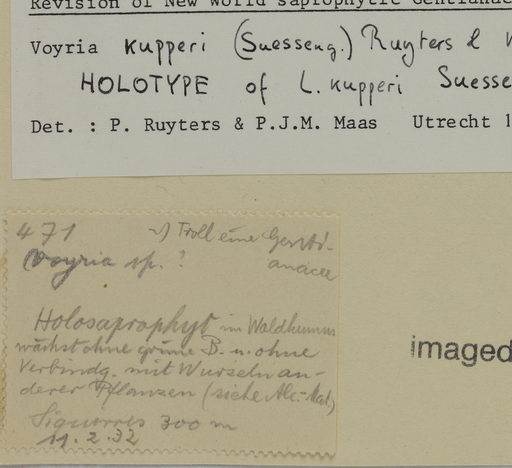 Revision of New World saprophytic Gentiana
Voyria kupperi (Suesseng.) Ruyters &
HOLOTYPE of L. kupperi Suesse
Det. : P. Ruyters & P.J.M. Maas Utrecht 1
471 Troll eine Genti-
Voyria sp. ? anacee
Holosaprophyt im Waldhumus
wächst ohne grüne B. u. ohne
Verbindg. mit Wurzeln an-
derer Pflanzen (siehe Alc.-Mat.)
Siquirres 300 m
11.2.32
imaged